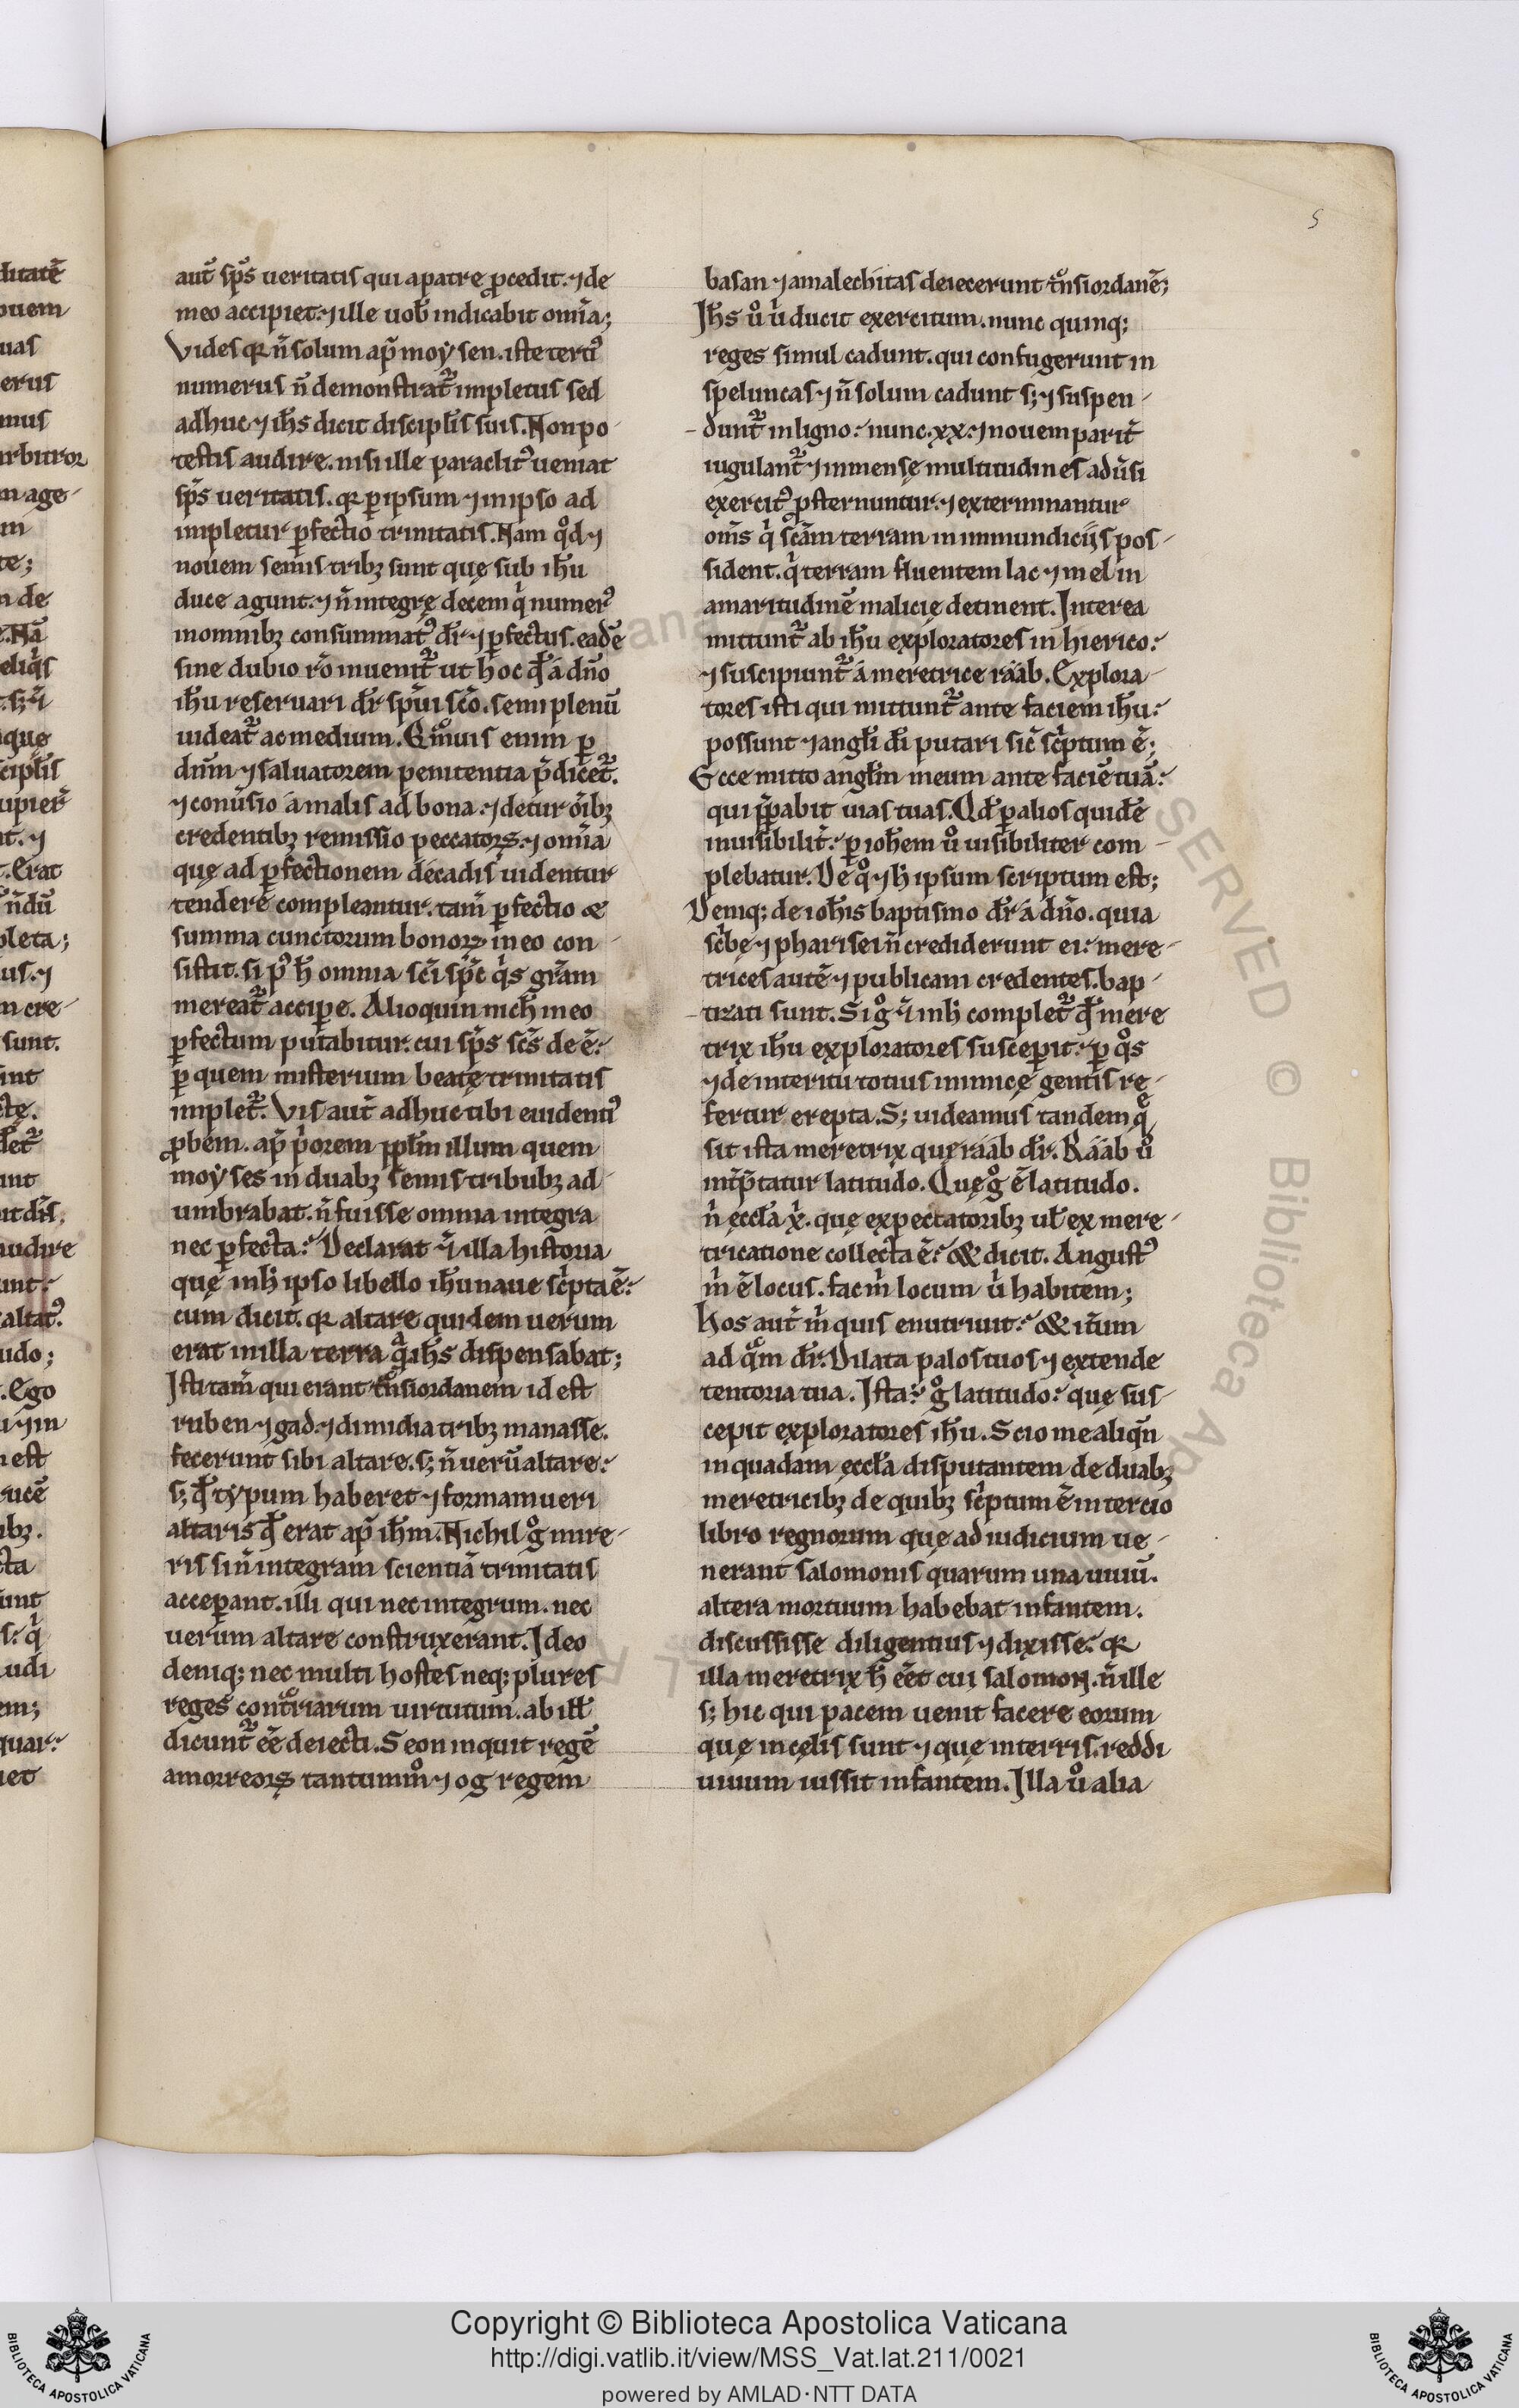 5
aut̃ sp̃s ueritatis qui apatre ꝓcedit. ⁊ de
meo accipiet. ⁊ ille uob̃ indicabit om̃ia;
Vides qꝛ ñ solum ap̃ moẏsen. iste terti᷒
numerus ñ demonstrat᷑ impletus sed
adhuc ⁊ ih̃s dicit discipl̃is suis. Non po
testis audire. nisi ille paraclit᷒ ueniat
sp̃s ueritatis. qꝛ ꝑ ipsum ⁊ in ipso ad
impletur ꝑfectio trinitatis. Nam qͦd ⁊
nouem semis tribꝫ sunt quę sub ih̃u
duce agunt. ⁊ ñ integrę decem qͥ numer᷒
inomnibꝫ consummat᷒ dr̃ ⁊ ꝑfectus. eadē
sine dubio rõ inuenit᷑ ut hoc qd̃ á dño
ih̃u reseruari dr̃ sp̃ui sc̃o. semi plenū
uideat᷑ ac medium. Qͣmuis enim ꝑ
dñm ⁊ saluatorem penitentia p̃dicet᷑.
⁊ conũsio á malis ad bona. ⁊ detur õibꝫ
credentibꝫ remissio peccatoꝝ. ⁊ om̃ia
quę ad ꝑfectionem decadis uidentur
tendere compleantur. tam̃ ꝑfectio ac
summa cunctorum bonoꝝ in eo con
sistit. si p᷒ h̃ omnia sc̃i sp̃c qͥs grãm
mereat᷑ accipe. Alioquin nich̃ in eo
ꝑfectum putabitur. cui sp̃s sc̃s de ẽ.
ꝑ quem misterium beatę trinitatis
implet᷑. Vis aut̃ adhuc tibi euidenti᷒
ꝓbem. ap̃ pͥorem ppl̃m illum quem
moẏses in duabꝫ semis tribubꝫ ad
umbrabat. ñ fuisse omnia integra
nec ꝑfecta. Declarat ⁊ illa historia
quę in h̃ ipso libello ih̃u naue scͥpta ẽ.
cum dicit. qꝛ altare quidem uerum
erat in illa terra qͣ ih̃s dispensabat;
Isti tam̃ qui erant tͣns iordanem id est
ruben ⁊ gad. ⁊ dimidia tribꝫ manasse.
fecerunt sibi altare. sꝫ ñ uerū altare.
sꝫ qd̃ tẏpum haberet ⁊ formam ueri
altaris qd̃ erat ap̃ ih̃m. Nichil gͦ mire
ris si ñ integram scientiã trinitatis
acceꝑant. illi qui nec integrum. nec
uerum altare construxerant. Ideo
deniqꝫ nec multi hostes neqꝫ plures
reges contͣriarum uirtutum. ab ill̃
dicunt᷑ eẽ deiecti. Seon inquit regẽ
amorreoꝝ tantummͦ ⁊ og regem
basan ⁊ amalechitas deiecerunt tͣns iordanẽ;
Ih̃s uͦ uͥ ducit exercitum. nunc quinqꝫ
reges simul cadunt. qui confugerunt in
speluncas ⁊ ñ solum cadunt sꝫ ⁊ suspen
dunt᷑ in ligno. nunc .xx. ⁊ nouem parit̃
iugulant᷑ ⁊ immensę multitudines adũsi
exercit᷒ ꝓsternuntur. ⁊ exterminantur
om̃s qͥ sc̃am terram in immundiciis pos
sident. qͥ terram fluentem lac ⁊ mel in
amaritudinẽ malicię detinent. Interea
mittunt᷑ ab ih̃u exploratores in hierico.
⁊ suscipiunt᷑ á meretrice rááb. Explora
tores isti qui mittunt᷑ ante faciem ih̃u.
possunt ⁊ angl̃i dĩ putari sic̃ scͥptum ẽ;
Ecce mitto angl̃m meum ante faciẽ tuã.
qui p̃parabit uias tuas. Qd̃ ꝑ alios quidẽ
inuisibilit̃. ꝑ ioh̃em uͦ uisibiliter com
plebatur. De qͦ ⁊ h̃ ipsum scriptum est;
Deniqꝫ de ioh̃is baptismo dr̃ á dño. quia
scͥbę ⁊ pharisei ñ crediderunt ei. mere
trices autẽ ⁊ publicani credentes. bap
tizati sunt. Si gͦ ⁊ in h̃ complet᷑ qd̃ mere
trix ih̃u exploratores susceꝑit. ꝑ qͦs
⁊ de interitu totius inimicę gentis re
fertur erepta. Sꝫ uideamus tandem qͤ
sit ista meretrix quę rááb dr̃. Rááb uͦ
int̃p̃tatur latitudo. Quę gͦ ẽ latitudo.
nͥ ęccl̃a xͥ. quę expectatoribꝫ ul̃ ex mere
tricatione collecta ẽ. & dicit. Angust᷒
mͥ ẽ locus. fac mͥ locum uͥ habitem;
Hos aut̃ mͥ quis enutriuit. & it̃um
ad qͣm dr̃. Dilata palos tuos ⁊ extende
tentoria tua. Ista gͦ latitudo. quę sus
cepit exploratores ih̃u. Scio me aliqñ
in quadam ęccl̃a disputantem de duabꝫ
meretricibꝫ de quibꝫ scͥptum ẽ in tercio
libro regnorum quę ad iudicium ue
nerant salomonis quarum una uiuū.
altera mortuum habebat infantem.
discussisse diligentius ⁊ dixisse. qꝛ
illa meretrix h̃ eẽt cui salomon. ñ ille
sꝫ hic qui pacem uenit facere eorum
quę in cęlis sunt ⁊ quę in terris. reddi
uiuum iussit infantem. Illa uͦ alia
Copyright © Biblioteca Apostolica Vaticana
http://digi.vatlib.it/view/MSS_Vat.lat.211/0021
powered by AMLAD·NTT DATA
BIBLIOTECA APOSTOLICA VATICANA
BIBLIOTECA APOSTOLICA VATICANA